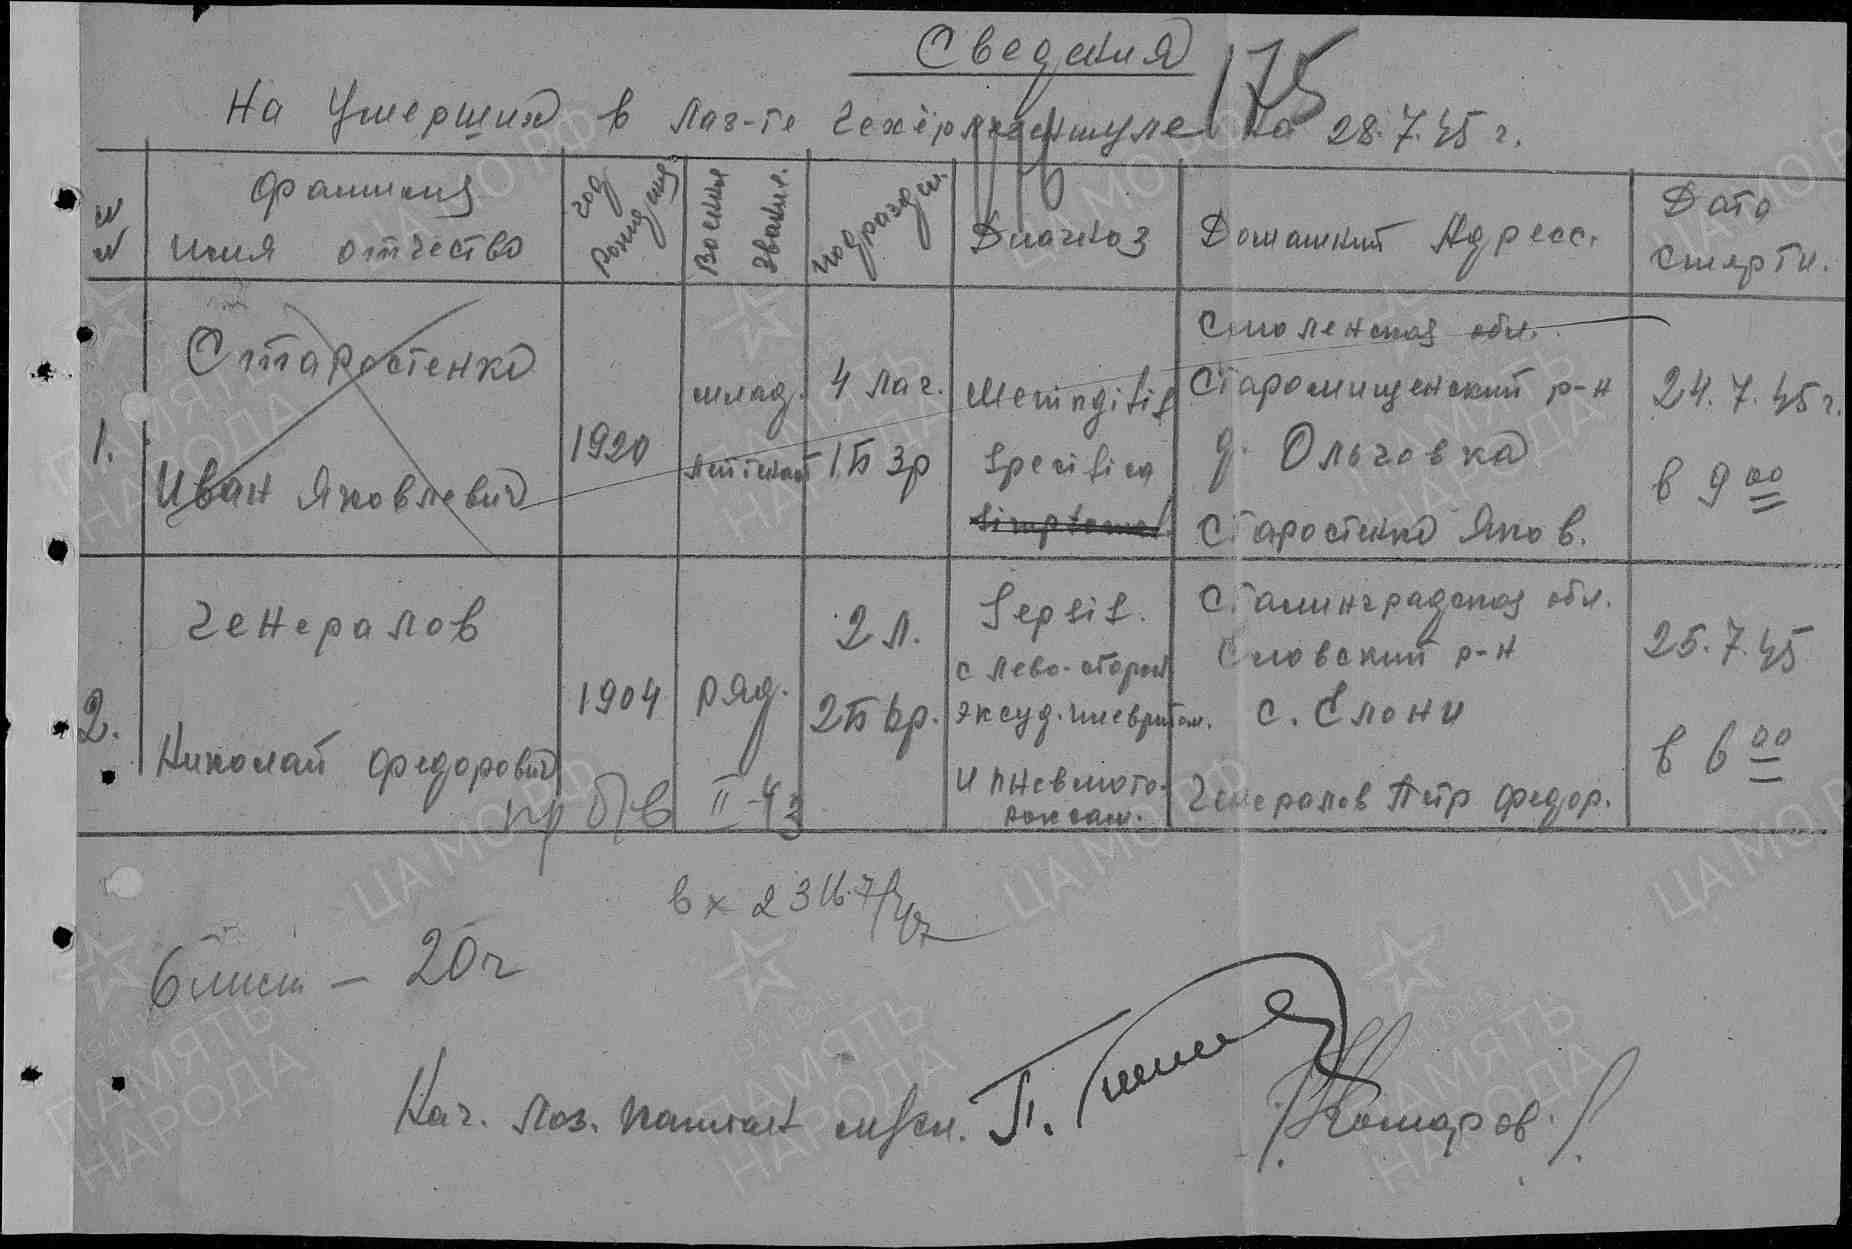 Сведения
175
На Умерших в лаз-те на 28.7.45 г.
№№
Фамилия
имя отчество
год рождения
Военн. звание
подраздел.
Диагноз
Домашний Адресс.
Дата
смерти.
1.
Старостенко
Иван Яковлевич
1920
млад.
лейтенант
4 лаг.
1 Б 3 р
Meningitis
Specifica
Смоленская обл.
р-н
д. Ольховка
Старостенко Яков.
24.7.45 г.
в 9 00
2.
Генералов
Николай Федорович
1904
ряд.
2 л.
2 Б
Sepsis.
с лево-сторон
эксуд. плевритом.
и пневмото-
раксам.
Сталинградская обл.
р-н
с. Елони
Генералов Петр Федор.
25.7.45
в 6 00
пр б/в II-43
вх
20 г
Нач. Лаз. Капитан м/сл. П.
/Комаров./
ЦА МО РФ
1941-1945
ПАМЯТЬ
НАРОДА